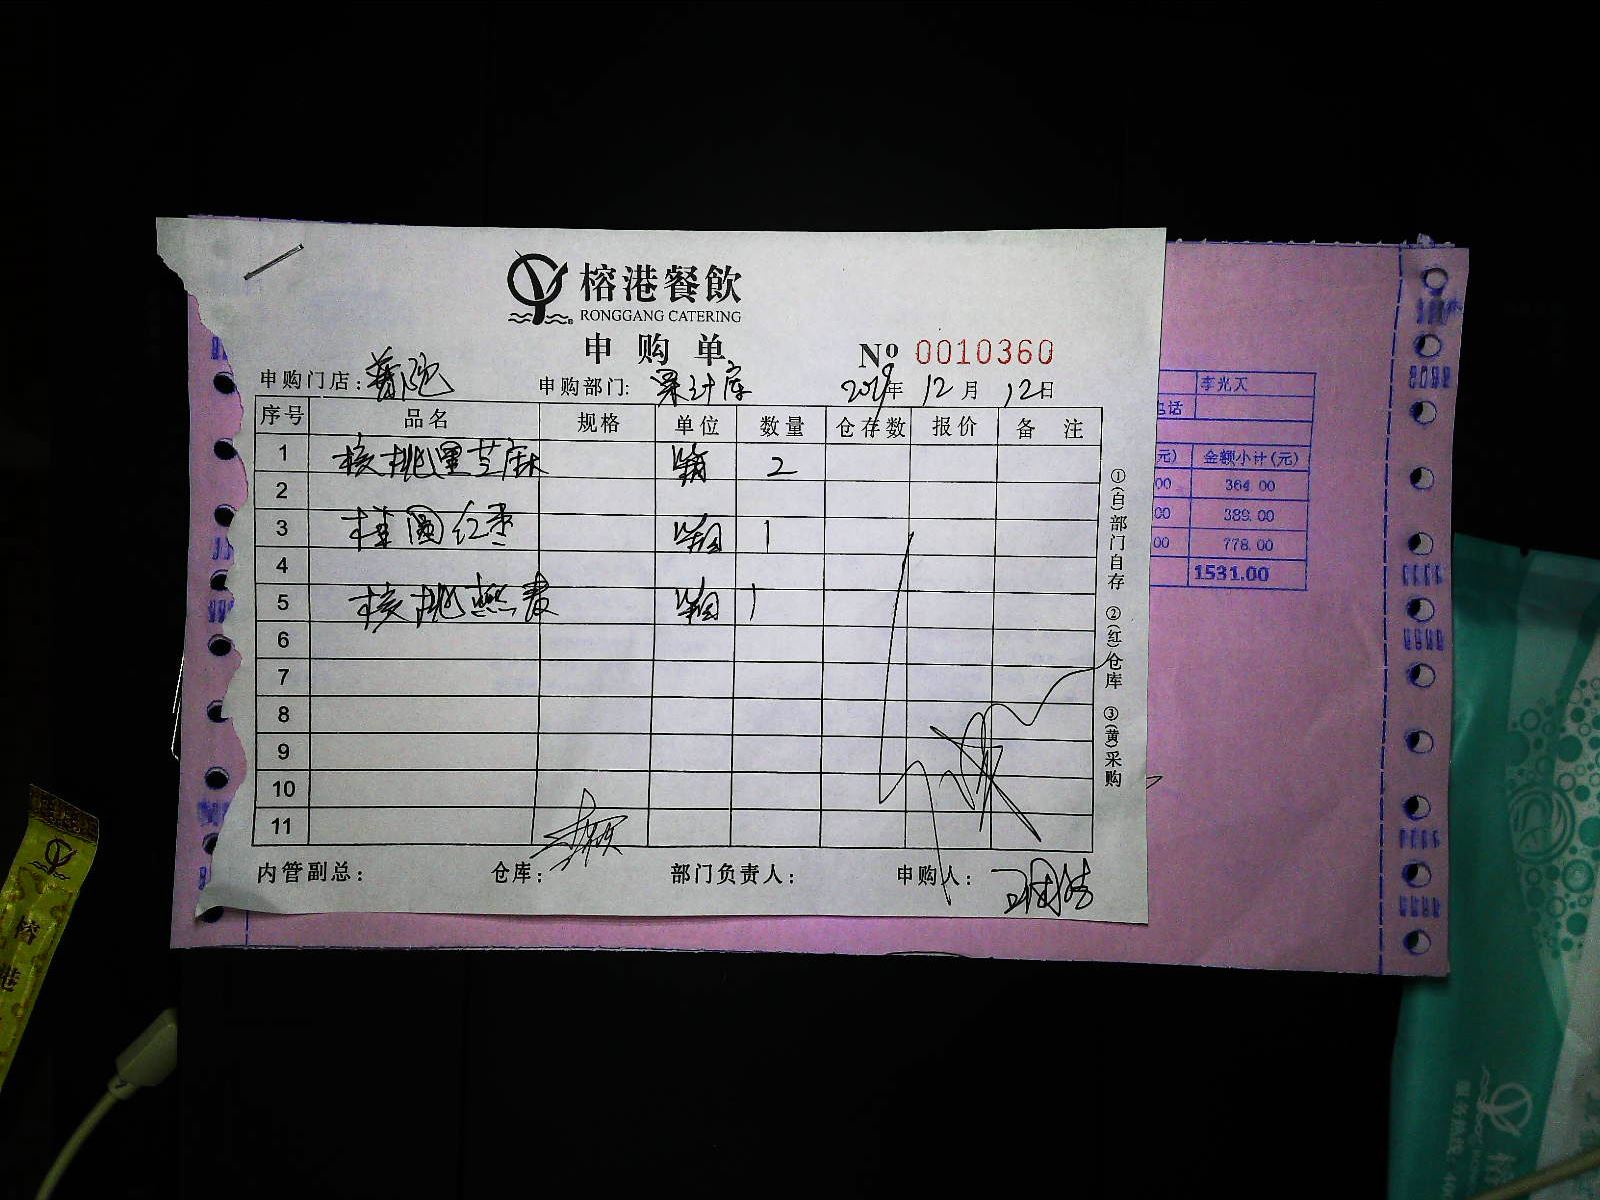 榕港餐飲
RONGGANG CATERING
申购单
Nº 0010360
申购门店: 普陀 申购部门: 果汁房 2019年 12月 12日
序号 品名 规格 单位 数量 仓存数 报价 备 注
1 核桃黑芝麻 箱 2
2
3 桂圆红枣 箱 1
4
5 核桃燕麦 箱 1
6
7
8
9
10
11
内管副总: 仓库: 部门负责人: 申购人:
①(白)部门自存 ②(红)仓库 ③(黄)采购
李光天
电话
元) 金额小计(元)
00 364.00
00 389.00
00 778.00
1531.00
榕港